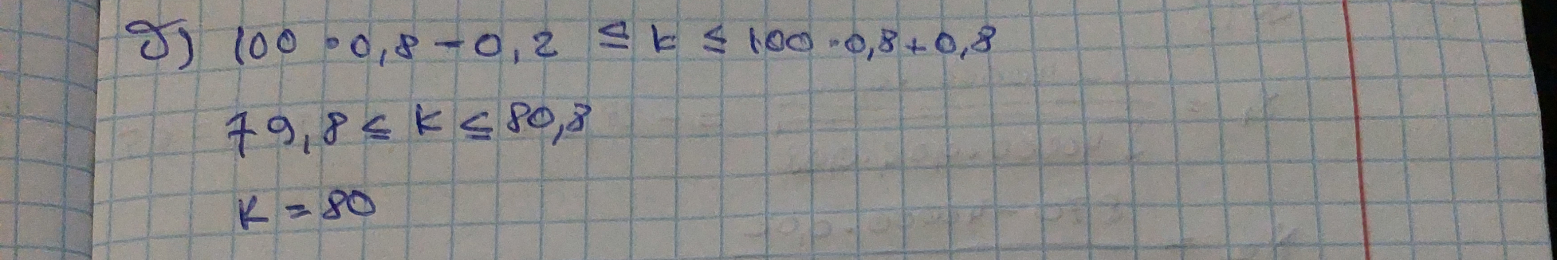 д) 100 · 0,8 - 0,2 ≤ k ≤ 100 · 0,8 + 0,8
79,8 ≤ k ≤ 80,8
k = 80